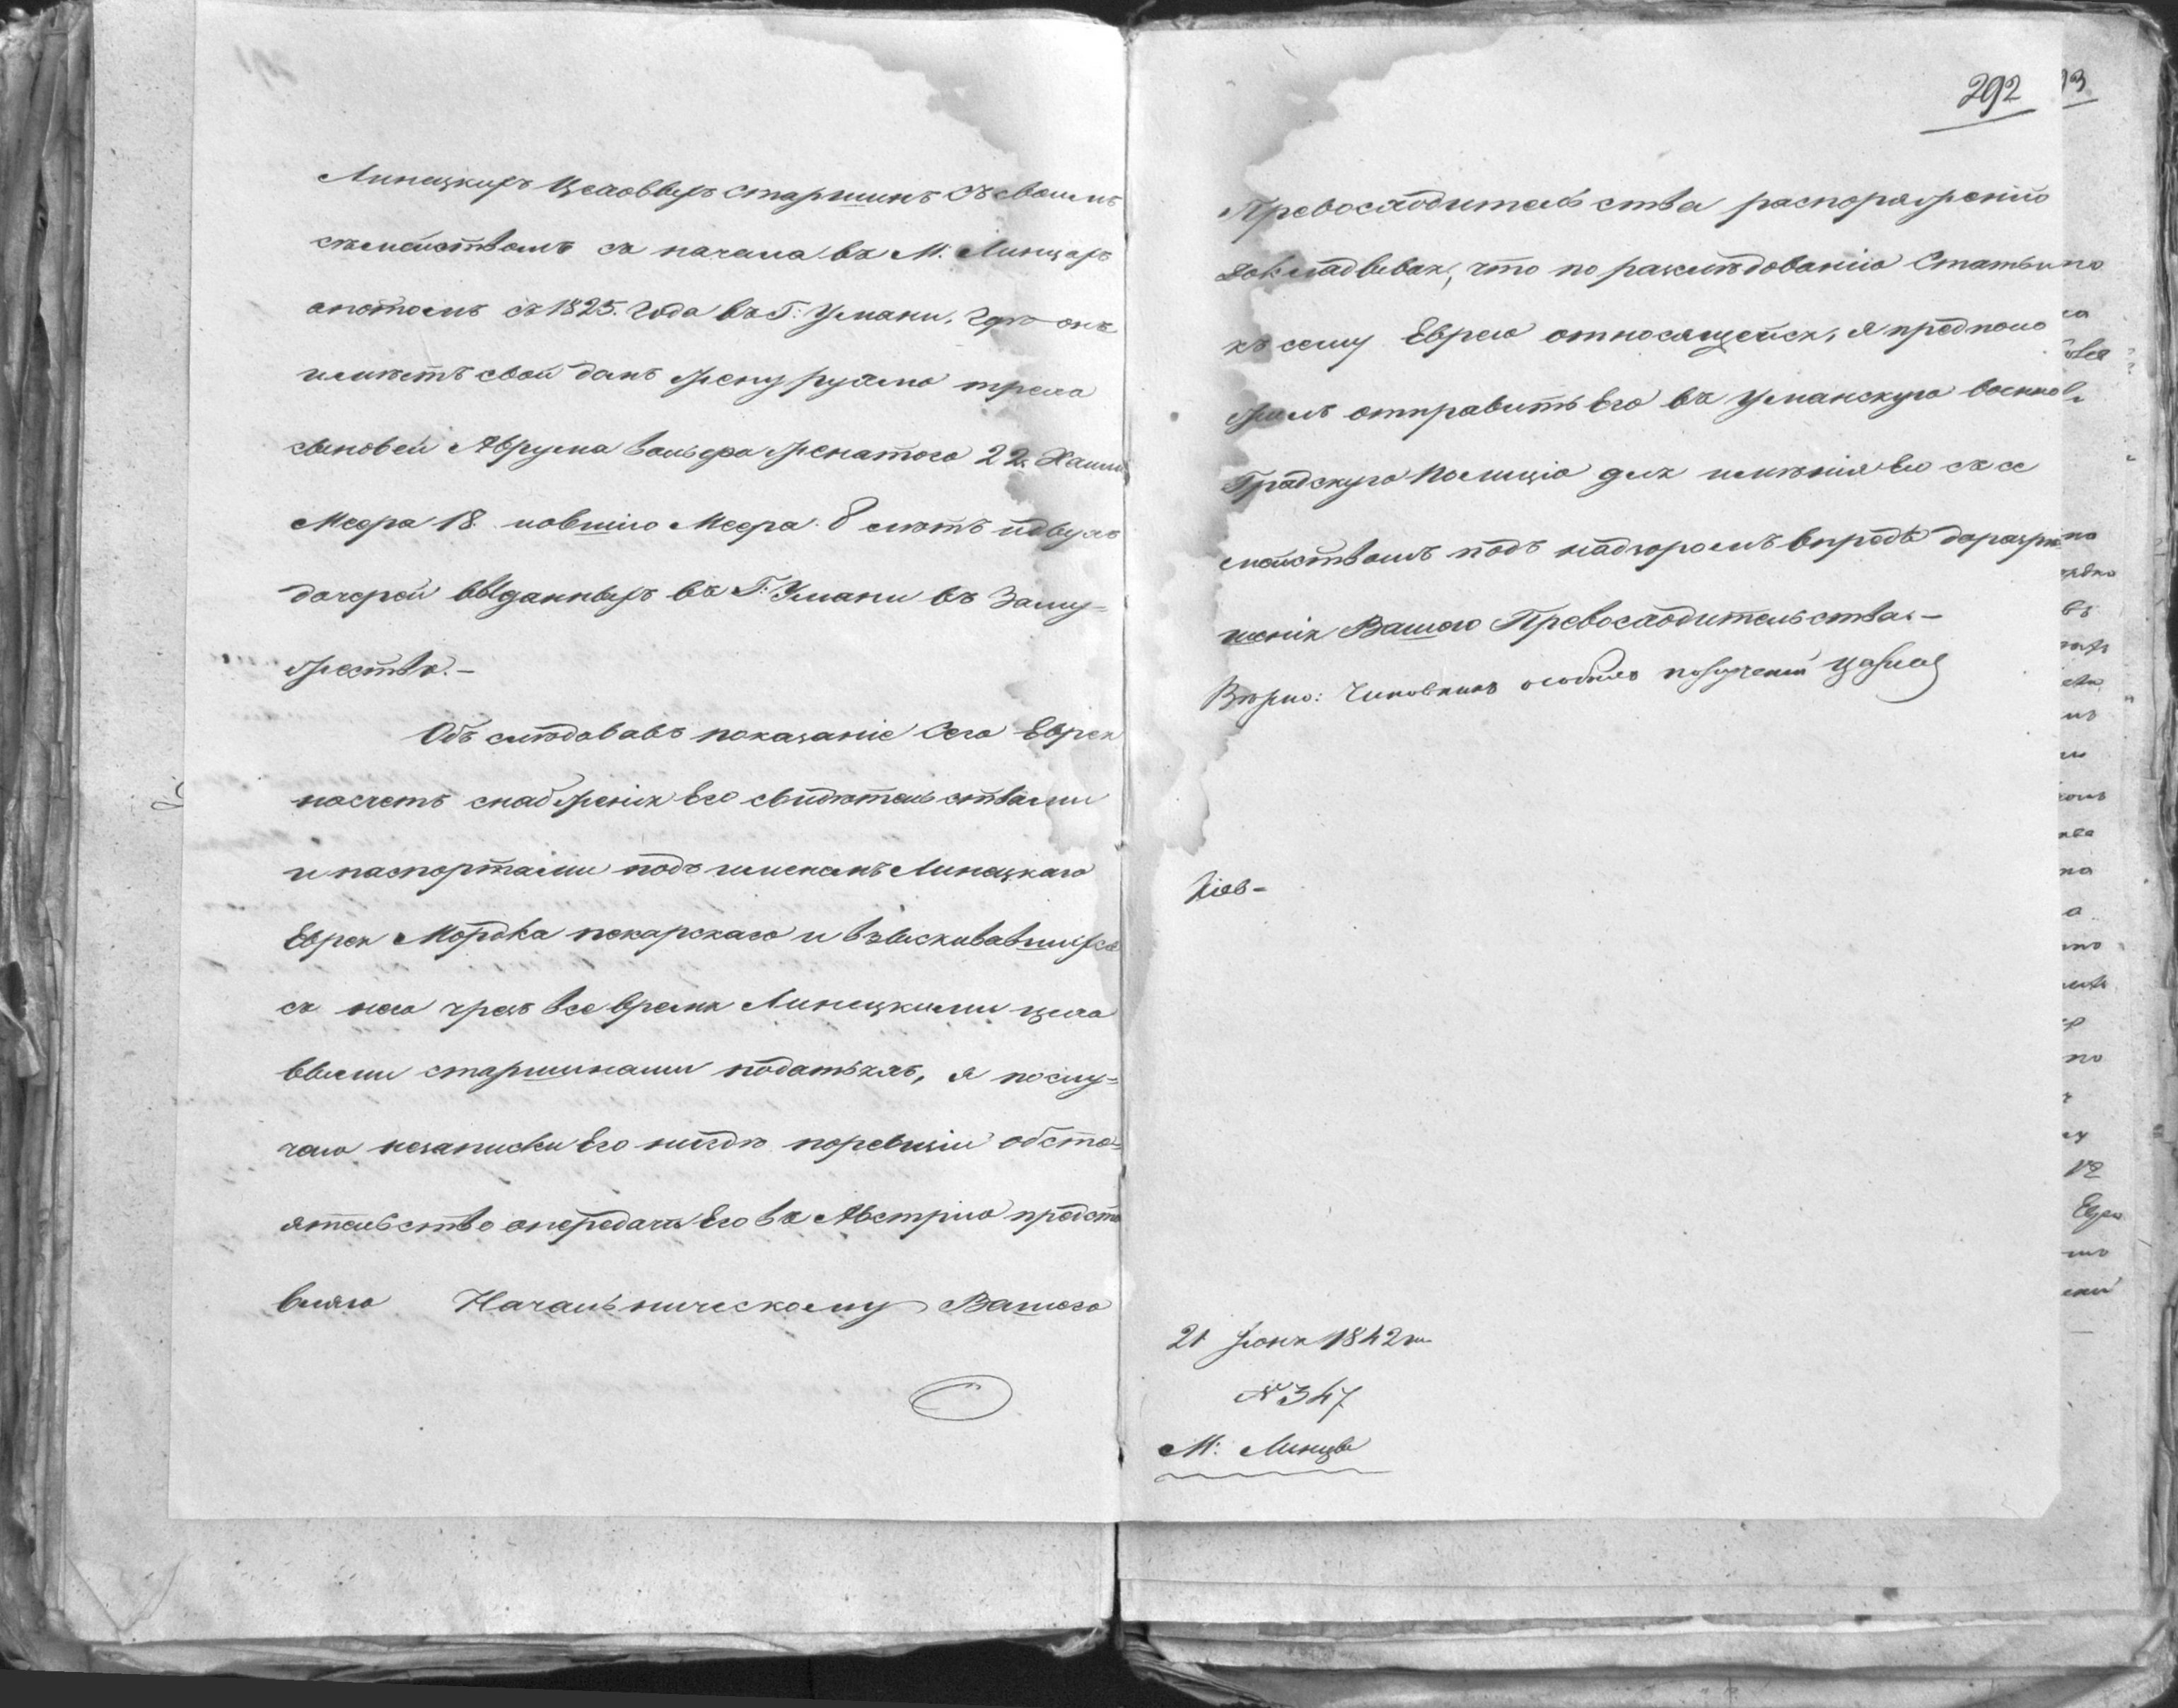 Линецкихъ Цеховыхъ старшинъ съ своимъ
съмействомъ съ начала въ М. Линцахъ
апотомъ съ 1825. года въ Г: Умани, гдѣ онъ
имѣетъ свой домъ жену рухлю трехъ
сыновей Аврума вольфа женатого 22. Хаима
Меера 18. иовшія Меера 8 лѣтъ идвухъ
дочерей выданныхъ въ Г: Умани въ Заму=
жество.—
Обслѣдовавъ показаніе Сего Еврея
насчетъ снабженія Его свидѣтельствами
и паспортами подъ имемъ Линецкаго
Еврея Мордка пекарскаго и взыскивавшихся
съ него чрезъ все время Линецкими цехо
выми старшинами податьяхъ, я послу=
чаю незаписки Его нигдѣ поревизіи обсто=
ятельство опередачѣ Его въ Австрію предста
вляю Начальническому Вашего
292
Превосходительства распоряженію
докладывая, что по разслѣдованію Статьи
къ сему Еврею относящейся, я предполо
жилъ отправить Его въ Уманскую военно
Градскую Полицію для имѣнія Его съ се
мействомъ подъ надзоромъ впредь до разрѣ
шенія Вашего Превосходительства.—
Вѣрно: Чиновникъ особыхъ порученій
Кіев-
21 Іюня 1842 г.
№ 347
М: Линцы